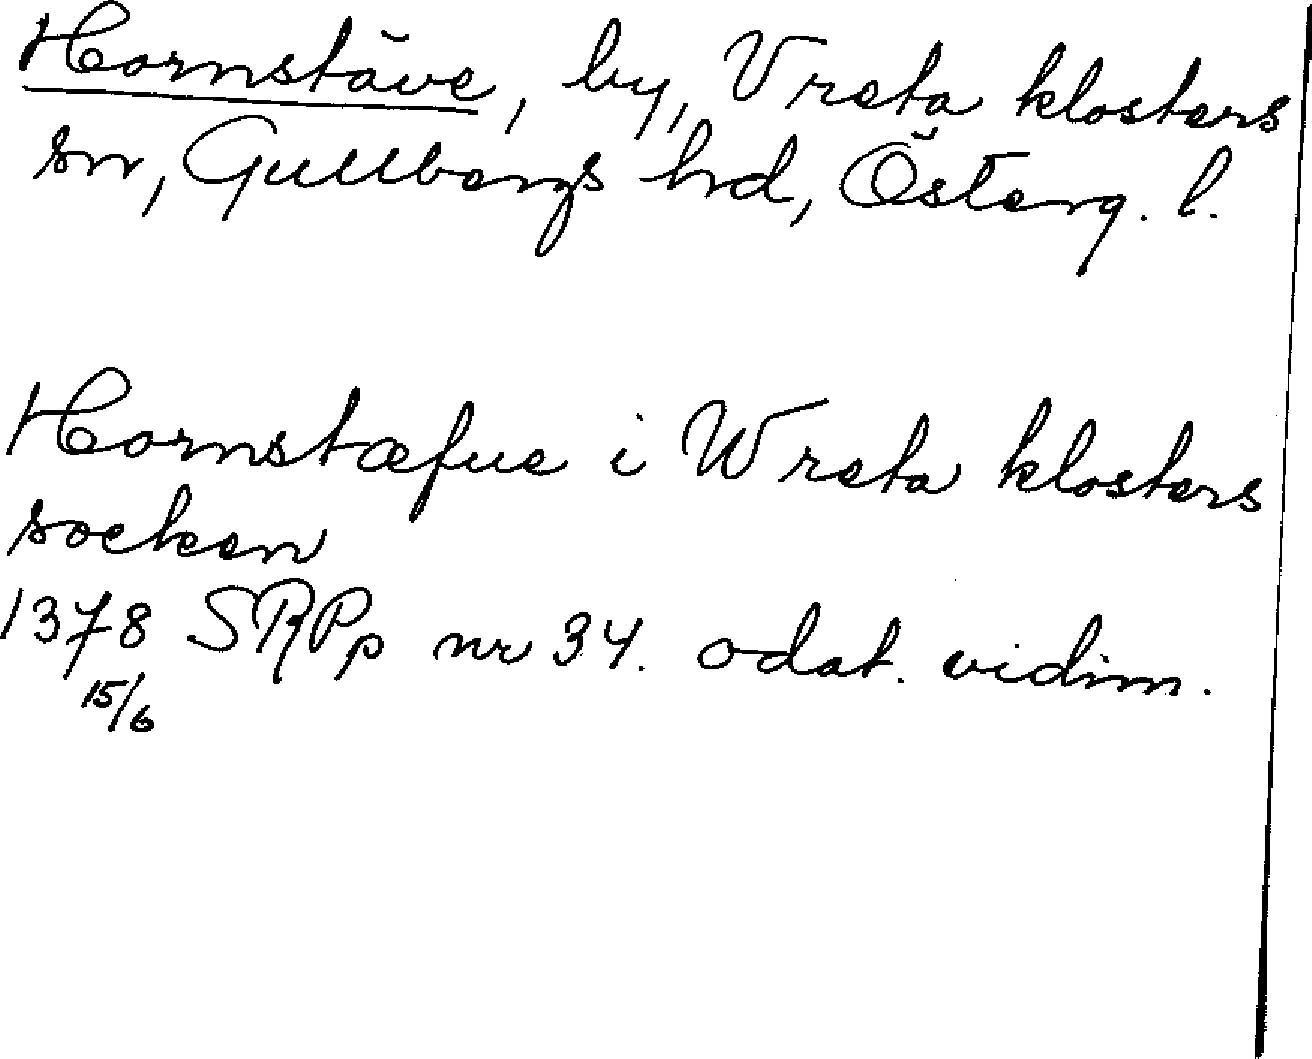 Hornstäve, by, Vreta klosters
sn, Gullbergs hrd, Österg. l.
Hornstæfue i Wreta klosters
socken
1378 SRPp nr 34. odat. vidim.
15/6